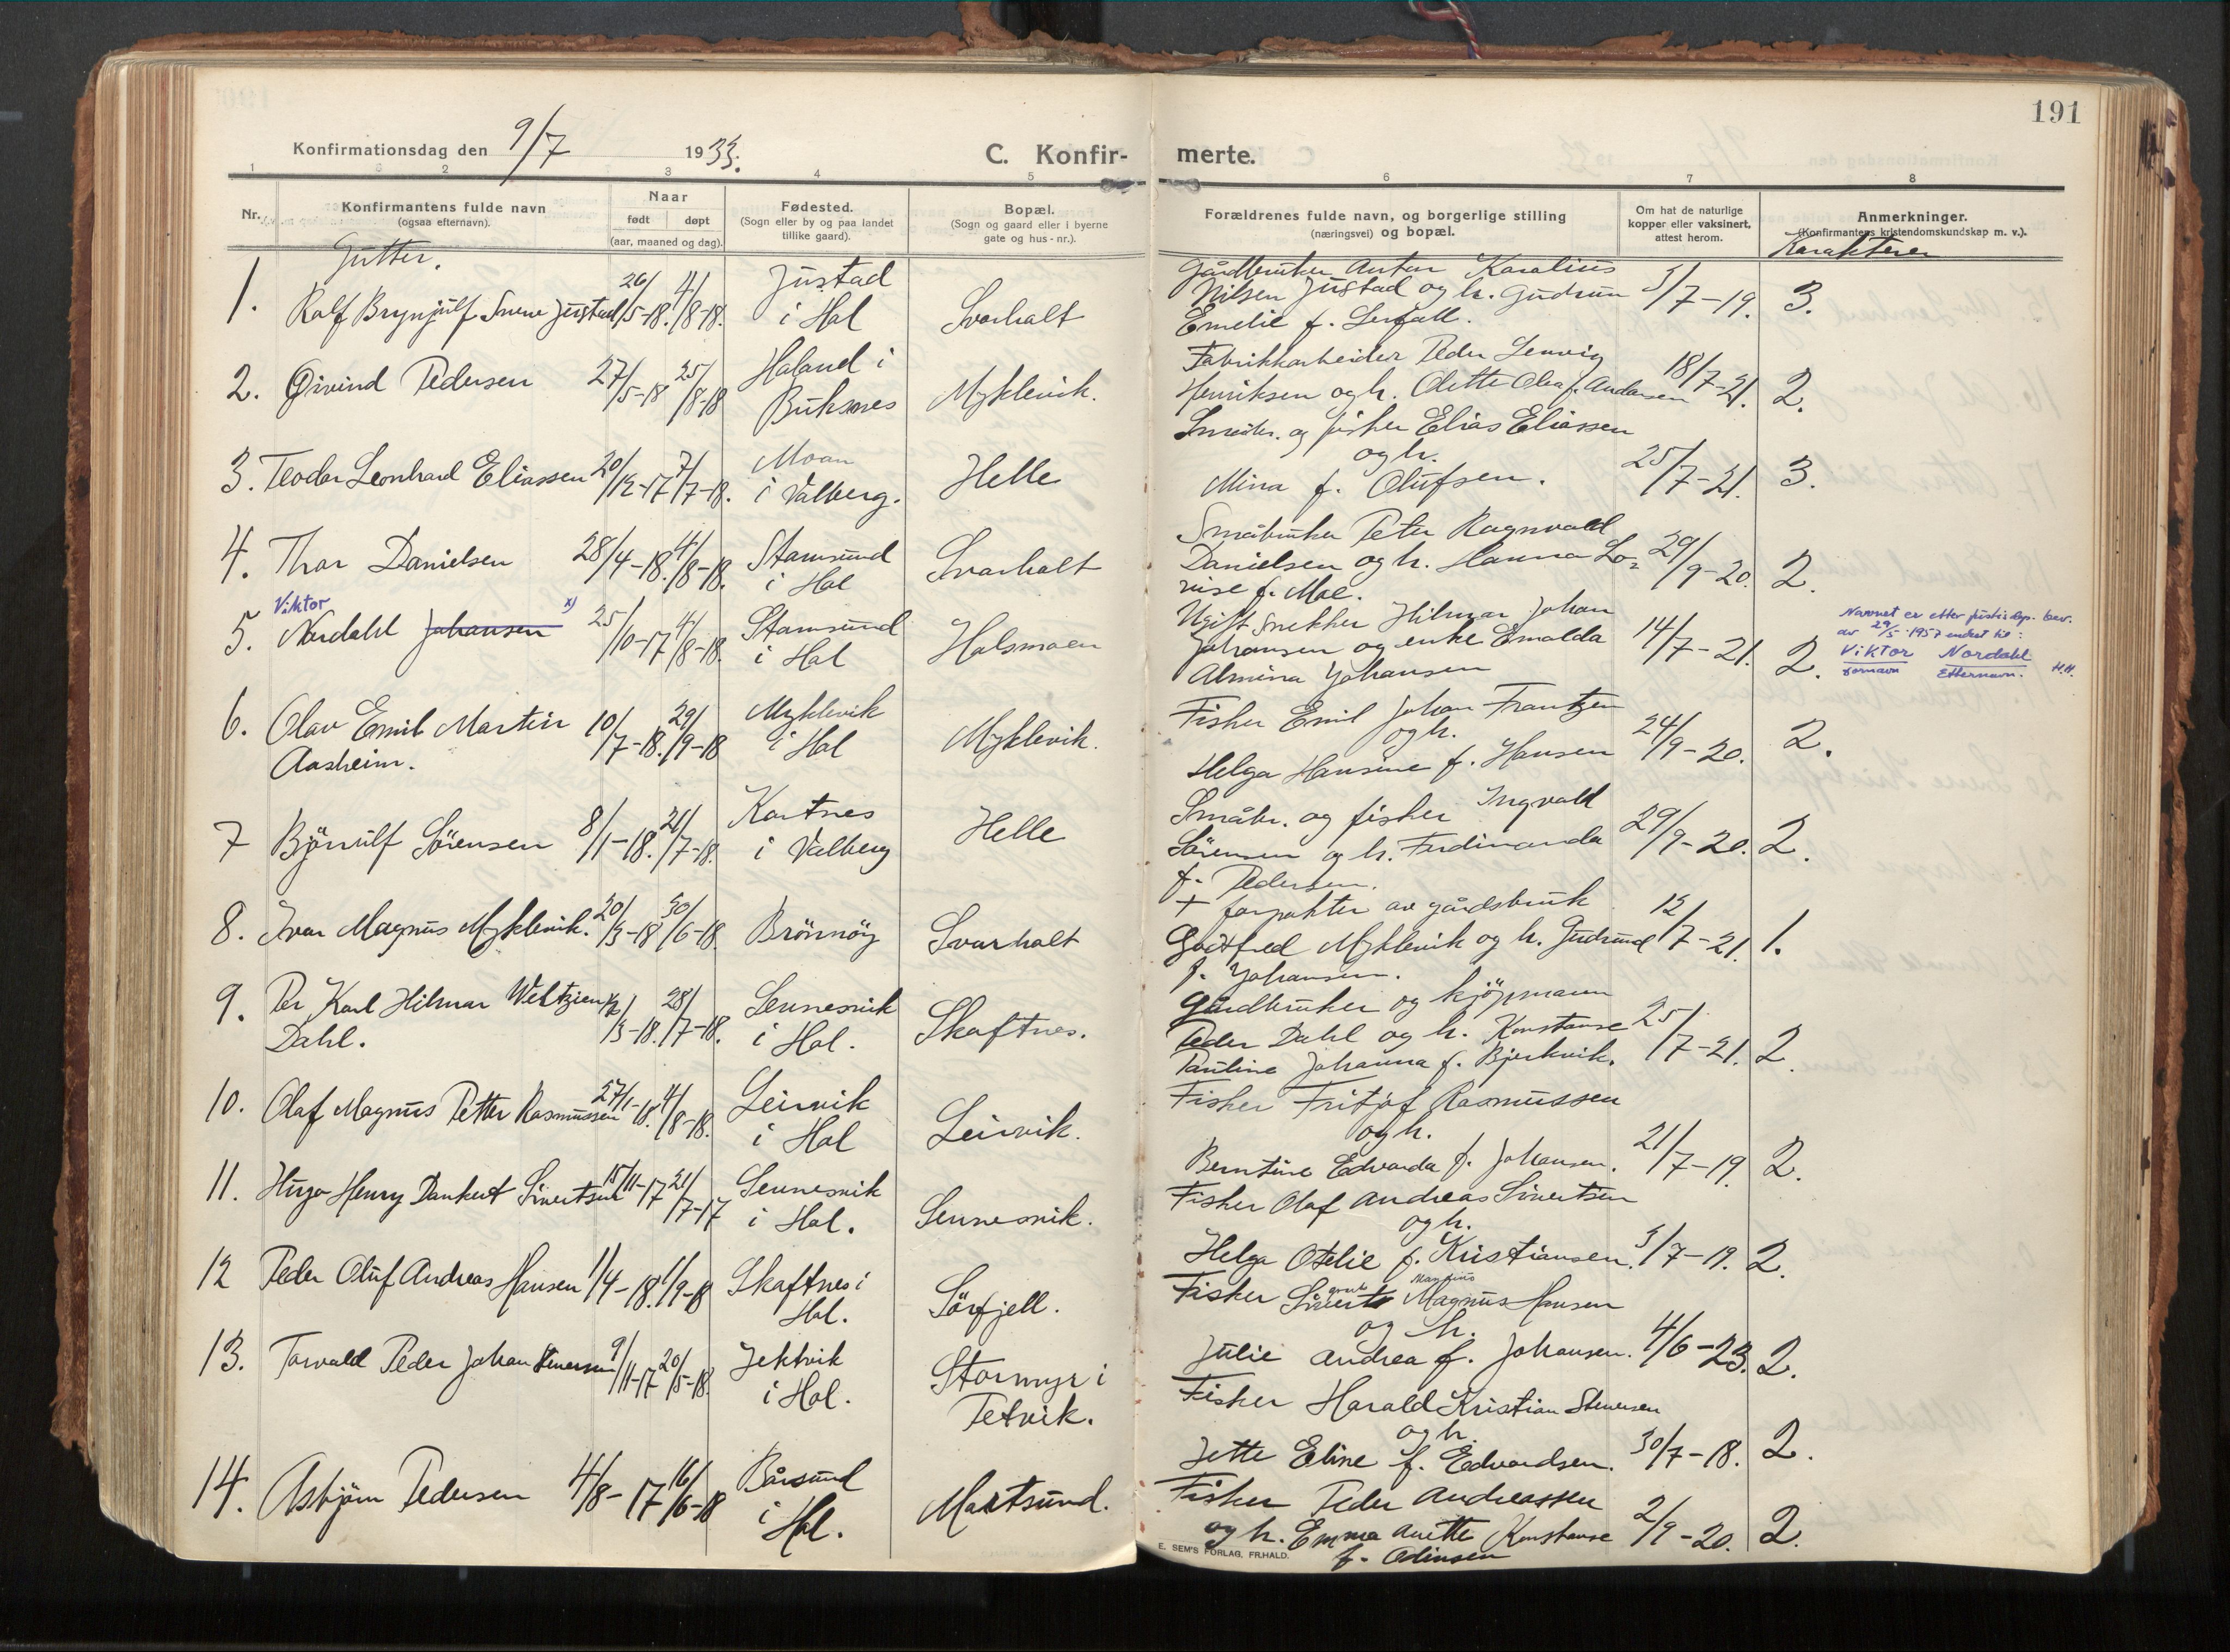 191
Konfirmationsdag den 9/7 1933.
C. Konfir-
merte.
1 2 3 4 5 6 7 8
Nr.
Konfirmantens fulde navn
(ogsaa efternavn).
Naar
født døpt
(aar, maaned og dag).
Fødested.
(Sogn eller by og paa landet
tillike gaard).
Bopæl.
(Sogn og gaard eller i byerne
gate og hus-nr.).
Forældrenes fulde navn, og borgerlige stilling
(næringsvei) og bopæl.
Om hat de naturlige
kopper eller vaksinert,
attest herom.
Anmerkninger.
(Konfirmantens kristendomskundskap m. v.).
Karakterer
Gutter.
1. Ralf Brynjulf Snene Justad 26/5-18. 4/8-18. Justad
i Hol
Svarholt
Gårdbruker Anton Karolius
Nilsen Justad og h. Gudrun
Emelie f. Lerfall.
3/7-19. 3.
2. Øivind Pedersen 27/5-18 25/8-18 Haland i
Buksnes
Myklevik.
Fabrikkarbeider Peder Lenvig
Henriksen og h. Olette Olea f. Andersen
18/7-21. 2.
3. Teodor Leonhard Eliassen 20/12-17 7/7-18. Moan
i Valberg.
Helle
Småbr. og fisker Elias Eliassen
og h.
Mina f. Olufsen.
25/7-21. 3.
4. Thor Danielsen 28/4-18. 4/8-18. Stamsund
i Hol
Svarholt
Småbruker Peter Ragnvald
Danielsen og h. Hanna Lo=
vise f. Moe.
29/9-20. 2.
Viktor
5. Nordahl Johansen x) 25/10-17 4/8-18. Stamsund
i Hol
Holsmoen
Ugift Snekker Hilmar Johan
Johansen og enke Emalda
Almina Johansen
14/7-21. 2.
Navnet er etter justisdep. bev.
av 29/5-1957 endret til:
Viktor Nordahl
Fornavn Etternavn. H.H.
6. Olav Emil Martin
Aasheim.
10/7-18. 29/9-18 Myklevik
i Hol
Myklevik.
Fisker Emil Johan Frantzen
og h.
Helga Hansine f. Hansen
24/9-20. 2.
7 Björnulf Sörensen 8/1-18. 21/7-18. Kartnes
i Valberg
Helle
Småbr. og fisker Ingvald
Sörensen og h. Ferdinanda
f. Pedersen.
29/9-20. 2.
8. Ivar Magnus Myklevik. 20/3-18 30/6-18. Brönnöy Svarholt
+ forpakter av gårdsbruk
Godtfred Myklevik og h. Gudrund
f. Johansen.
12/7-21. 1.
9. Per Karl Hilmar Weltzien
Dahl.
/3-18. 28/7-18. Sennesvik
i Hol.
Skaftnes.
Gårdbruker og kjöpmann
Peder Dahl og h. Konstanse
Pauline Johanna f. Bjerkvik.
25/7-21. 2.
10. Olaf Magnus Petter Rasmussen 27/1-18. 4/8-18. Leirvik
i Hol
Leirvik.
Fisker Fritjof Rasmussen
og h.
Berntine Edvarda f. Johansen.
21/7-19. 2.
11. Hugo Henry Dankert Sivertsen 15/11-17 21/7-17 Sennesvik
i Hol.
Sennesvik.
Fisker Olaf Andreas Sivertsen
og h.
Helga Otelie f. Kristiansen.
3/7-19. 2.
12 Peder Oluf Andreas Hansen 1/4-18. 1/9-18 Skaftnes i
Hol.
Sörfjell.
Martinus
Fisker Sivert Magnus Hansen
og h.
Julie Andrea f. Johansen.
4/6-23. 2.
13. Torvald Peder Johan Stenersen 9/11-17 20/5-18. Jektvik
i Hol.
Stormyr i
Petvik.
Fisker Harald Kristian Stenersen
og h.
Jette Eline f. Edvardsen.
30/7-18. 2.
14. Asbjörn Pedersen 4/8-17 16/6-18 Bårsund
i Hol.
Mortsund.
Fisker Peder Andreassen
og h. Emma Anette Konstanse
f. Odinsen
2/9-20. 2.
E. SEM'S FORLAG, FR.HALD.